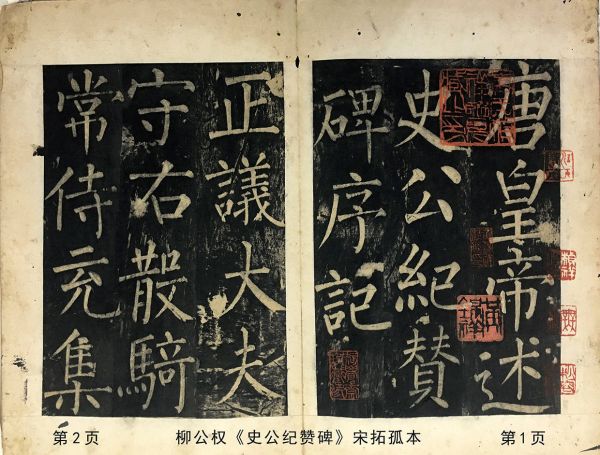 唐皇帝述
史公紀賛
碑序記
正議大夫
守右散騎
常侍充集
第2页
柳公权《史公纪赞碑》宋拓孤本
第1页